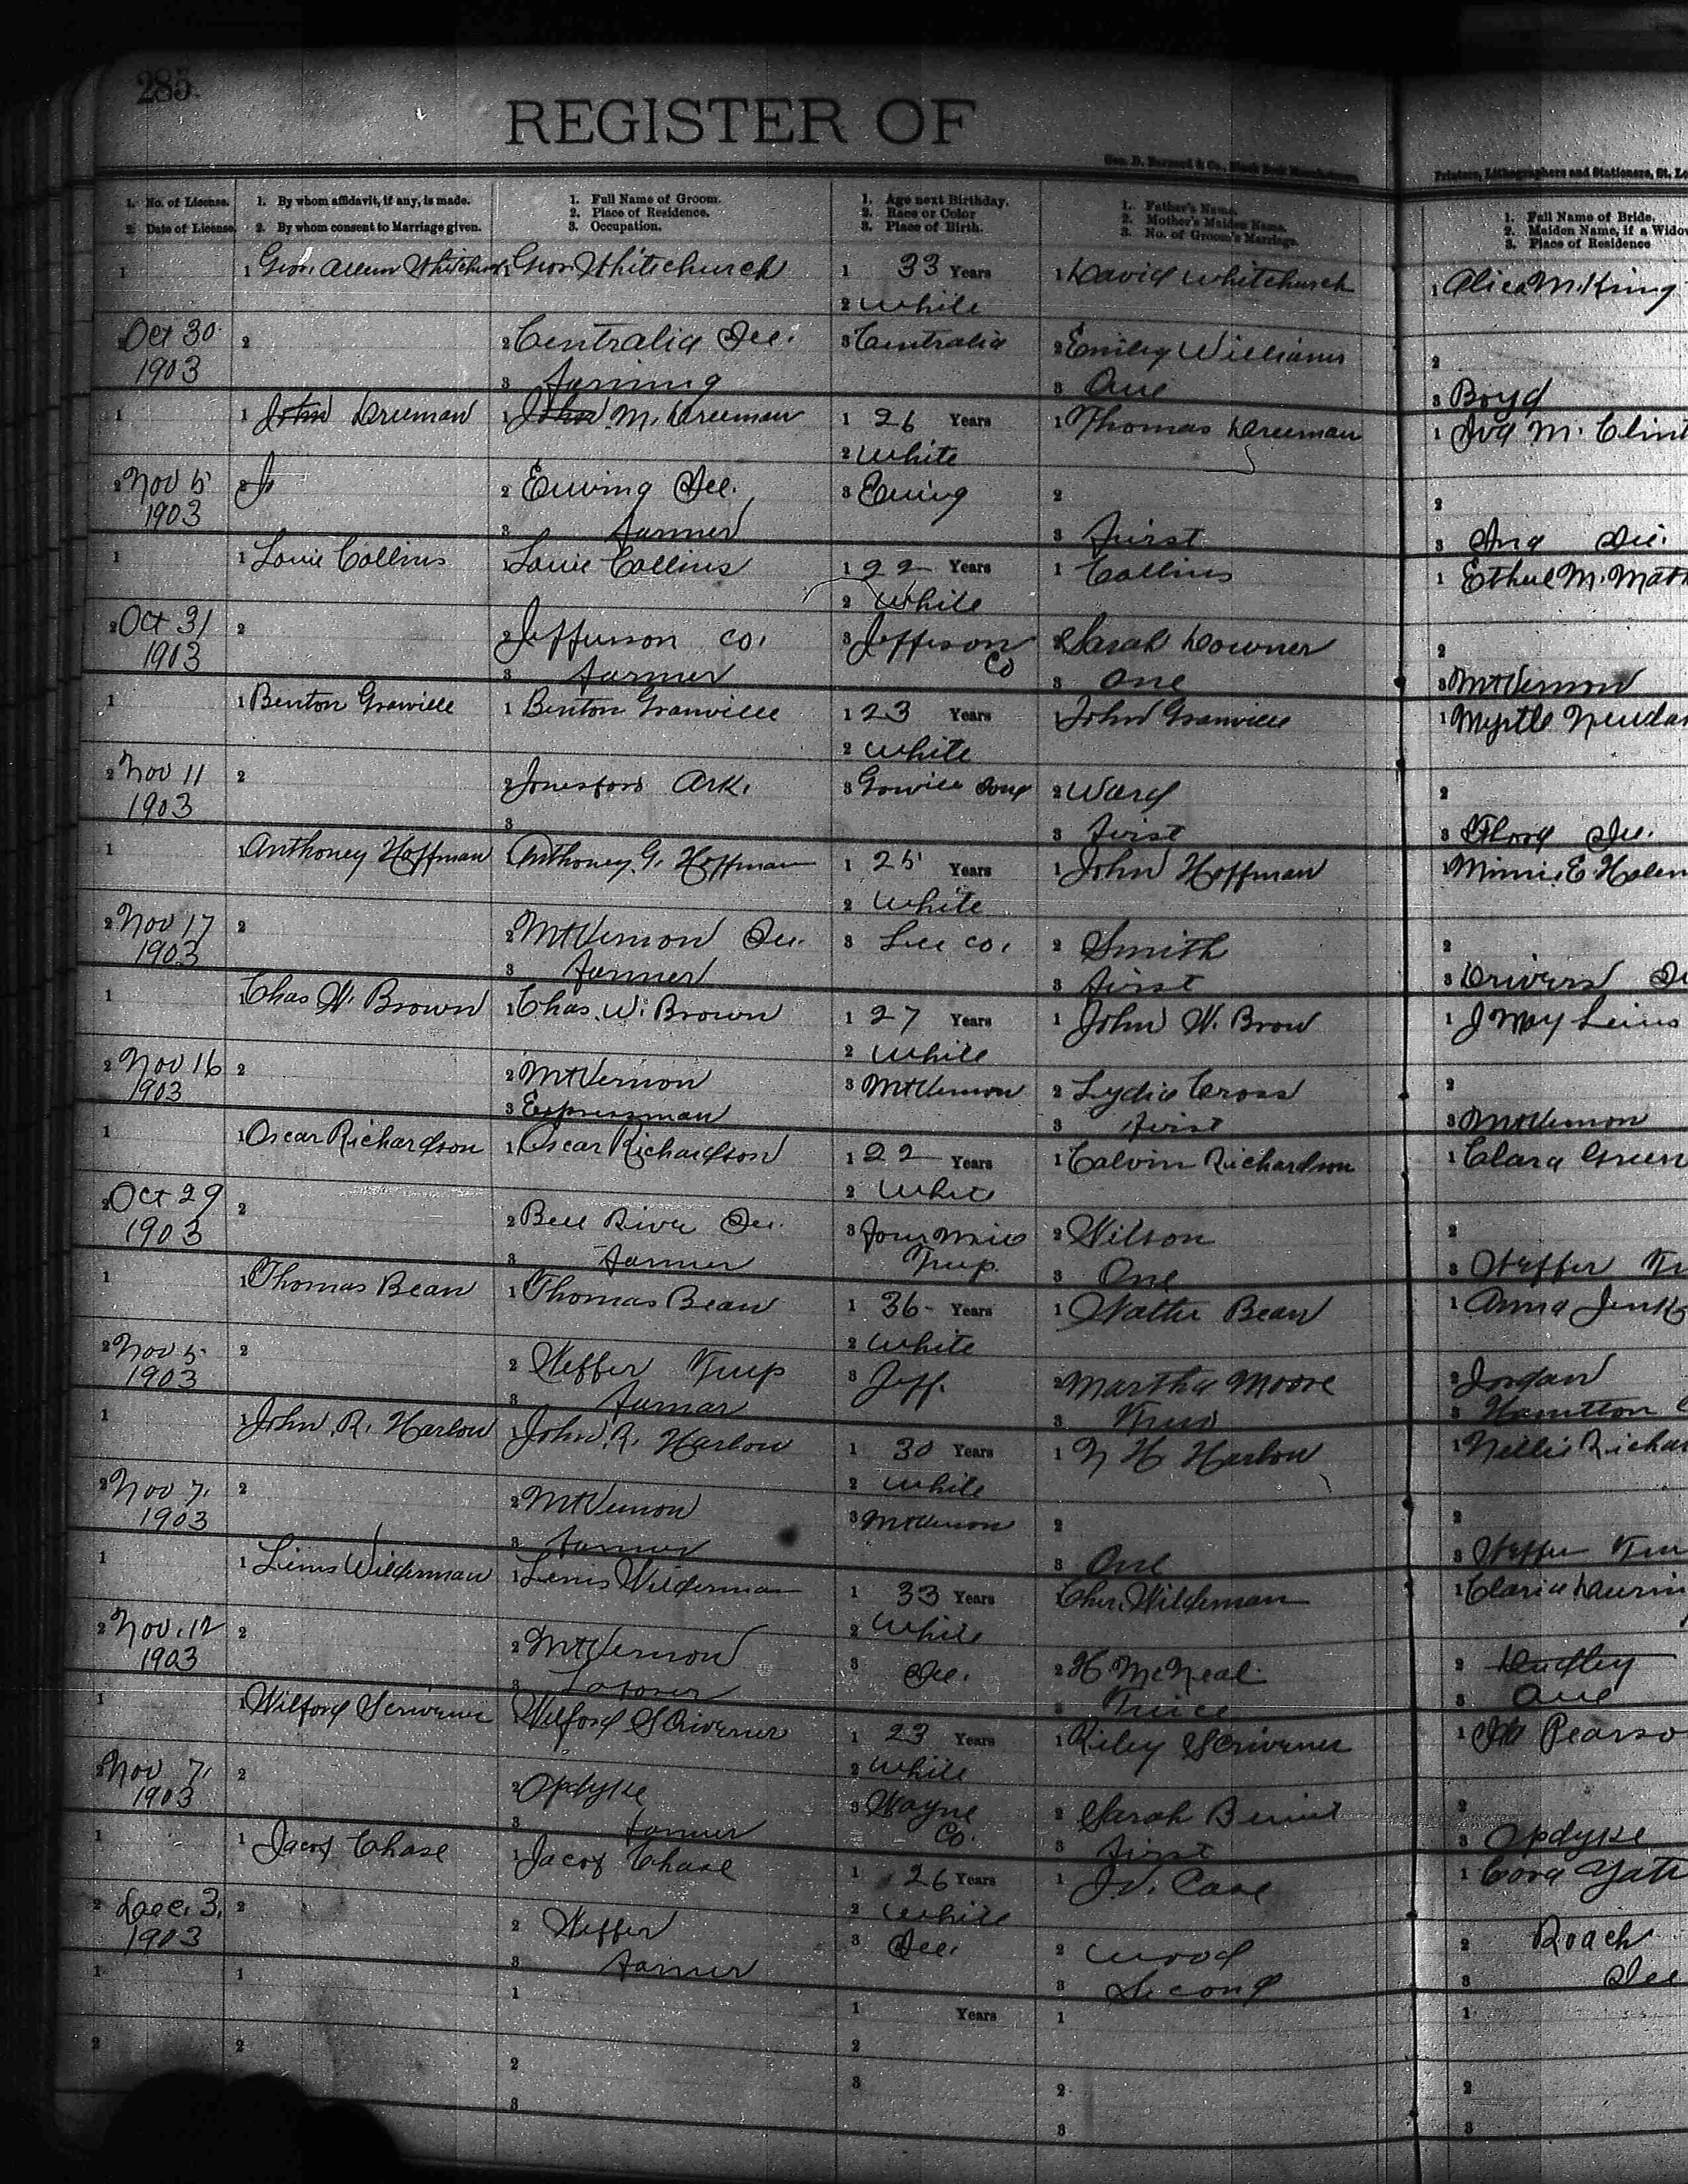 285.
REGISTER OF
Geo. D. Barnard & Co., Blank Book Manufacturers,
Printers, Lithographers and Stationers, St. Lo
1. No. of License.
2. Date of License.
1. By whom affidavit, if any, is made.
2. By whom consent to Marriage given.
1. Full Name of Groom.
2. Place of Residence.
3. Occupation.
1. Age next Birthday.
2. Race or Color
3. Place of Birth.
1. Father's Name.
2. Mother's Maiden Name.
3. No. of Groom's Marriage.
1. Full Name of Bride.
2. Maiden Name, if a Widow
3. Place of Residence
1
2 Oct 30
1903
1 Geo. Allen Whitchurch
2
1 Geo. Whitechurch
2 Centralia Ill.
3 Farming
1 33 Years
2 White
3 Centralia
1 David Whitchurch
2 Emiley Williams
3 One
1 Alice M. King
2
3 Boyd
1
2 Nov 5
1903
1 John Dreeman
2
1 John M. Dreeman
2 Ewing Ill.
3 Farmer
1 26 Years
2 White
3 Ewing
1 Thomas Dreeman
2
3 First
1 Iva M. Clint
2
3 Ina Ill.
1
2 Oct 31
1903
1 Louie Collins
2
1 Louie Collins
2 Jefferson Co.
3 Farmer
1 22 Years
2 White
3 Jeffison
Co
1 Collins
2 Sarah Downer
3 One
1 Ethel M. Math
2
3 Mt Vernon
1
2 Nov 11
1903
1 Benton Granville
2
1 Benton Granville
2 Ark.
3
1 23 Years
2 White
3
1 John Granville
2 Ward
3 First
1 Myrtle
2
3 Ill.
1
2 Nov 17
1903
1 Anthoney Hoffman
2
1 Anthoney G. Hoffman
2 Mt Vernon Ill.
3 Farmer
1 25 Years
2 White
3 Lee Co.
1 John Hoffman
2 Smith
3 First
1 Minnie E. Holem
2
3 Drivers Il
1
2 Nov 16
1903
1 Chas W. Brown
2
1 Chas. W. Brown
2 Mt Vernon
3 Expressman
1 27 Years
2 White
3 Mt Vernon
1 John W. Brow
2 Lydia Cross
3 First
1 J May Lewis
2
3 Mt Vernon
1
2 Oct 29
1903
1 Oscar Richardson
2
1 Oscar Richardson
2 Bell River Ill.
3 Farmer
1 22 Years
2 White
3 Four Mile
Twp.
1 Calvin Richardson
2 Wilson
3 One
1 Clara Green
2
3
1
2 Nov 5
1903
1 Thomas Bean
2
1 Thomas Bean
2 Webber Twp
3 Farmer
1 36 Years
2 White
3 Jeff.
1 Walter Bean
2 Martha Moore
3
1 Anna Jenks
2 Jordan
3 Hamilton C
1
2 Nov 7.
1903
1 John. R. Harlow
2
1 John. R. Harlow
2 Mt Vernon
3 Farmer
1 30 Years
2 White
3 Mt Vernon
1 N H Harlow
2
3 One
1 Nellie Richar
2
3
1
2 Nov. 12
1903
1 Lewis Wilderman
2
1 Lewis Wilderman
2 Mt Vernon
3 Laborer
1 33 Years
2 White
3 Ill.
Wilderman
2 H. McNeal
3 Twice
1
2 Dudley
3 One
1
2 Nov 7.
1903
1 Wilford Scrivener
2
1 Wilford Scrivener
2 Opdyke
3 Farmer
1 23 Years
2 White
3 Wayne
Co.
1 Riley Scrivener
2 Sarah
3 First
1 Pearso
2
3 Opdyke
1
2 Dec. 3.
1903
1 Jacob Chase
2
1 Jacob Chase
2 Webber
3 Farmer
1 26 Years
2 White
3 Ill.
1 J. V. Case
2 Wood
3 Second
1 Cora Yat
2 Roach
3 Ill
1
2
1
2
1
2
3
1 Years
2
3
1
2
3
1
2
3